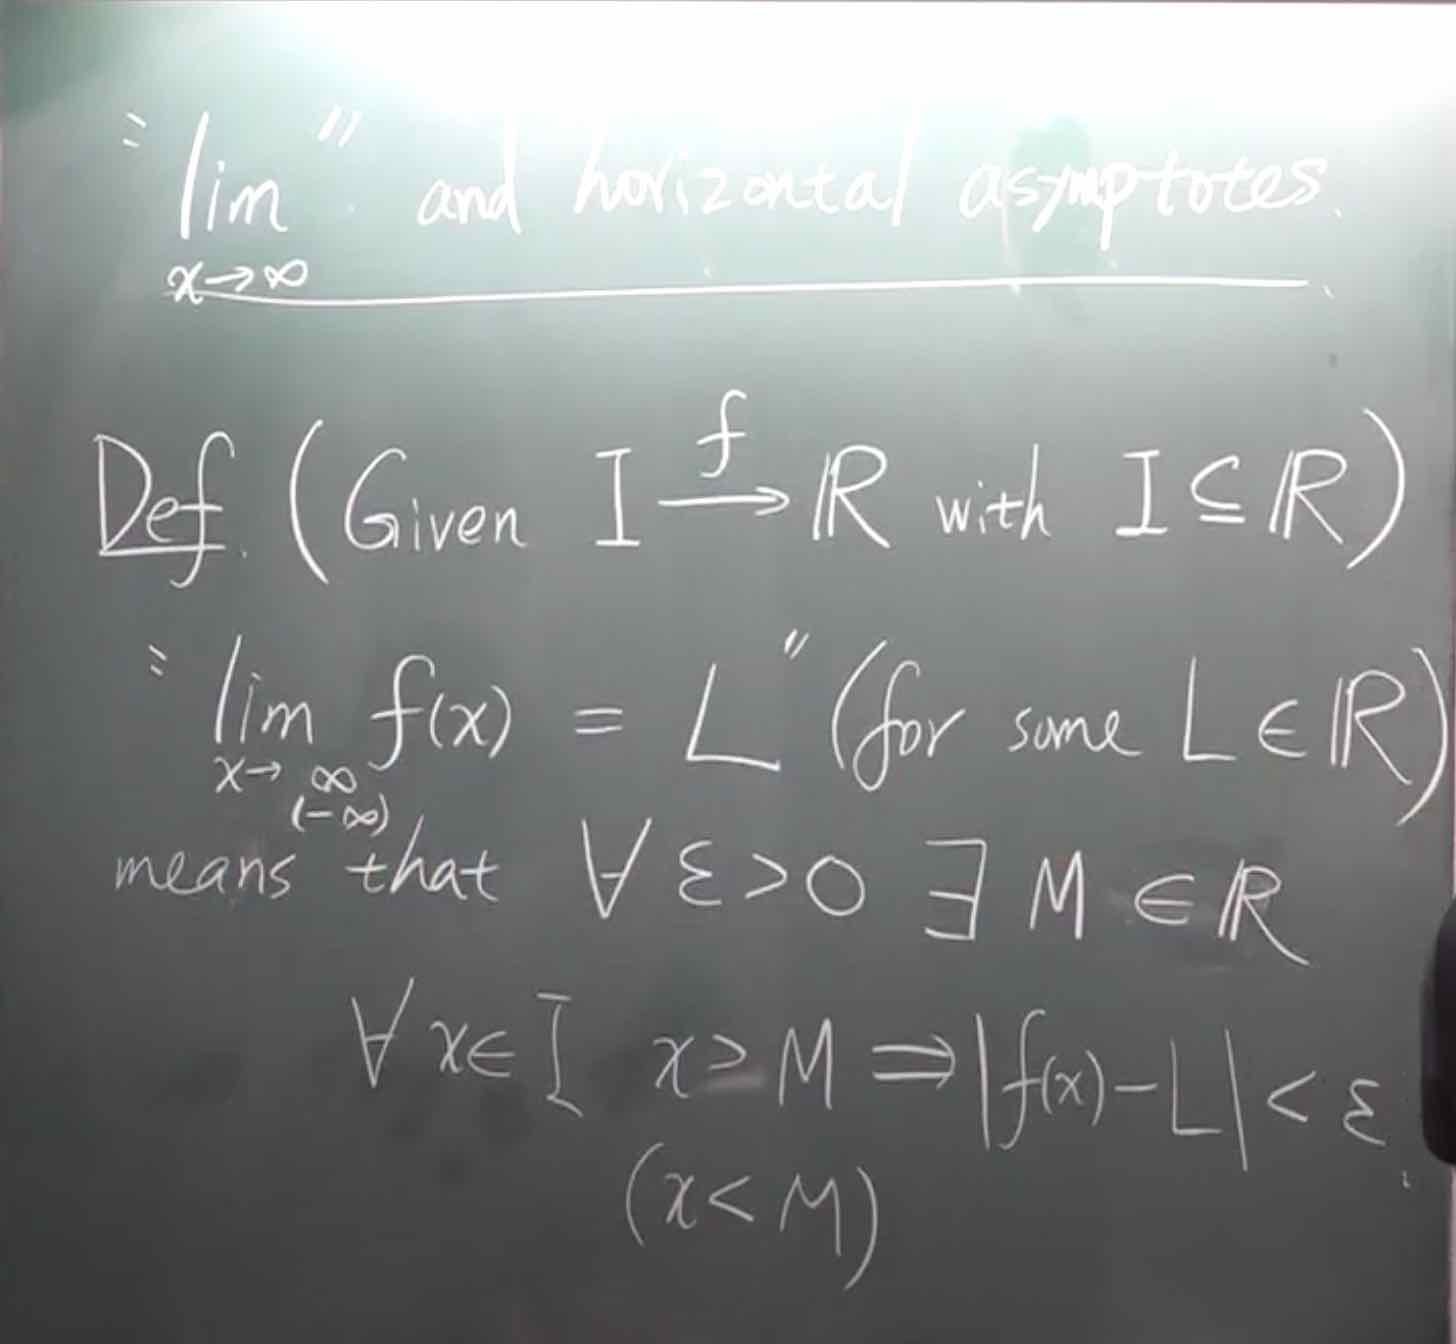 "lim" and horizontal asymptotes.
x→∞
Def. (Given I →f ℝ with I ⊆ ℝ)
"lim f(x) = L" (for some L ∈ ℝ)
x→ ∞
(-∞)
means that ∀ ε > 0 ∃ M ∈ ℝ
∀ x ∈ I x > M ⇒ |f(x) - L| < ε.
(x < M)